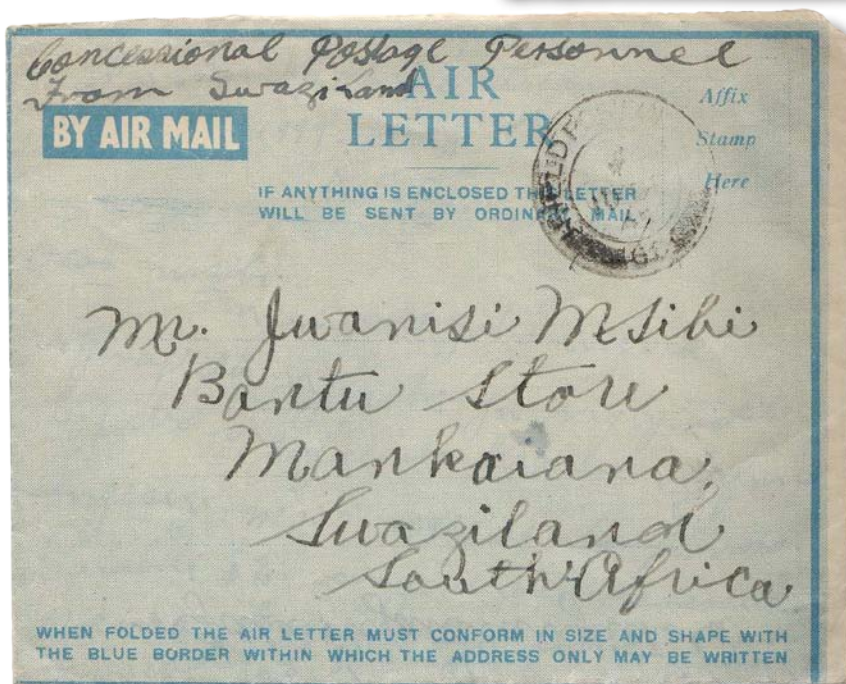 Concessional Postage Personnel
From Swaziland
AIR
LETTER
BY AIR MAIL
Affix
Stamp
Here
IF ANYTHING IS ENCLOSED THE LETTER
WILL BE SENT BY ORDINARY MAIL
Mr. Jwanisi Msibi
Bantu Store
Mankaiana,
Swaziland
South Africa
WHEN FOLDED THE AIR LETTER MUST CONFORM IN SIZE AND SHAPE WITH
THE BLUE BORDER WITHIN WHICH THE ADDRESS ONLY MAY BE WRITTEN